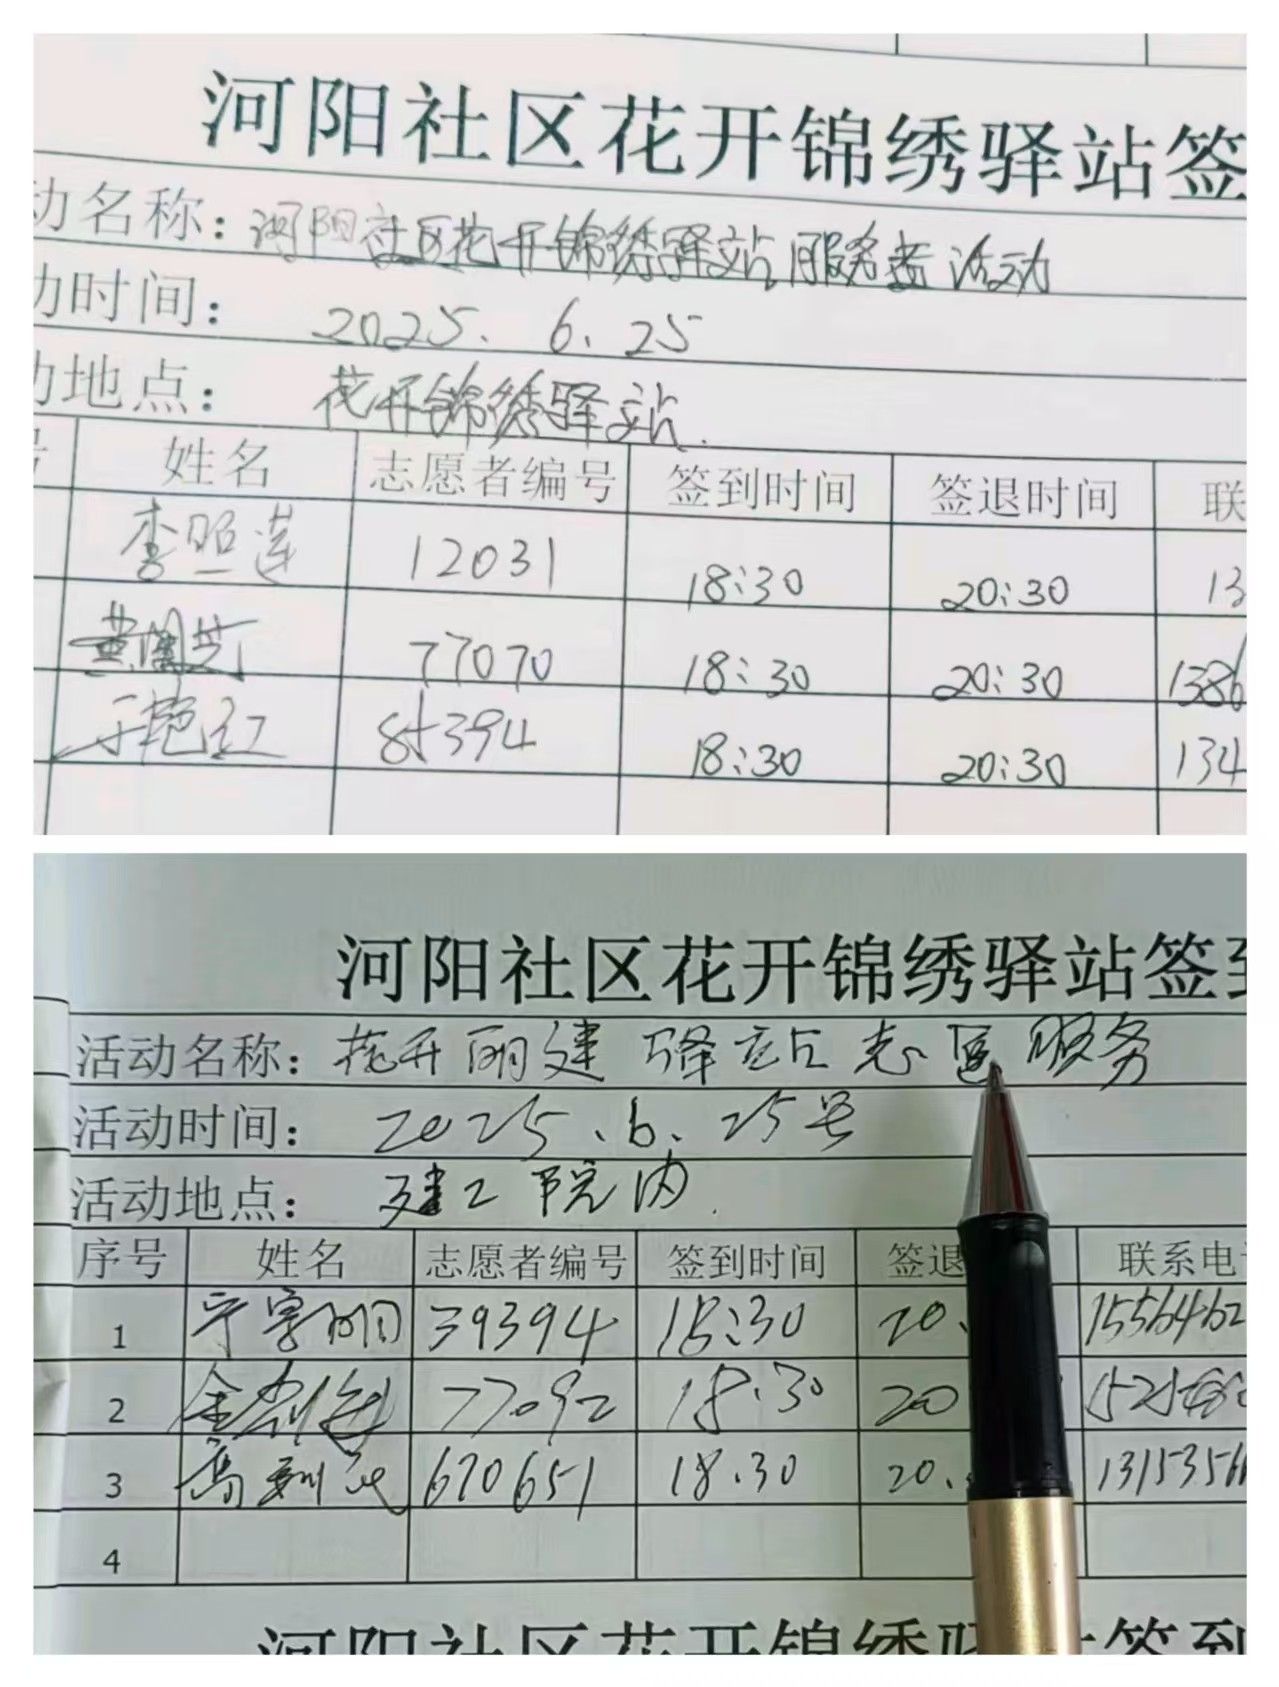 河阳社区花开锦绣驿站签
动名称：河阳社区花开锦绣驿站服务者活动
动时间： 2025.6.25
动地点： 花开锦绣驿站.
号 姓名 志愿者编号 签到时间 签退时间 联
李照莲 12031 18:30 20:30 13
黄阁芝 77070 18:30 20:30 1386
于艳红 85394 18:30 20:30 134
河阳社区花开锦绣驿站签到
活动名称：花开丽建驿站志愿服务
活动时间： 2025.6.25号
活动地点： 建工院内.
序号 姓名 志愿者编号 签到时间 签退 联系电
1 39394 18:30 20. 1556462
2 77092 18.30 20
3 670651 18.30 20. 1315356
4
河阳社区花开锦绣 签到